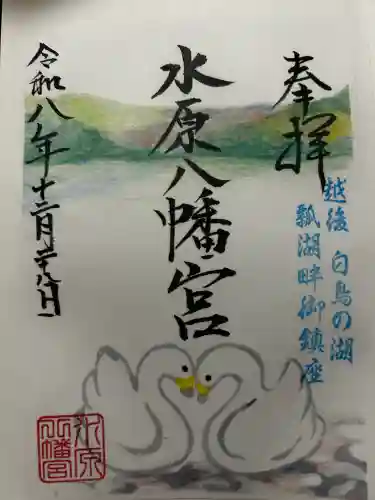 奉拝
越後 白鳥の湖
瓢湖畔御鎮座
水原八幡宮
令和八年十二月二十八日
水原
八幡宮